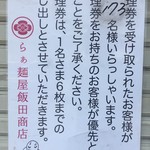 理券を受け取られたお客様が
173
名様いらっしゃいます。
理券をお持ちのお客様が優先と
ことをご了承ください。
は、1名さま6枚までの
し出とさせていただきます。
らぁ麺屋飯田商店